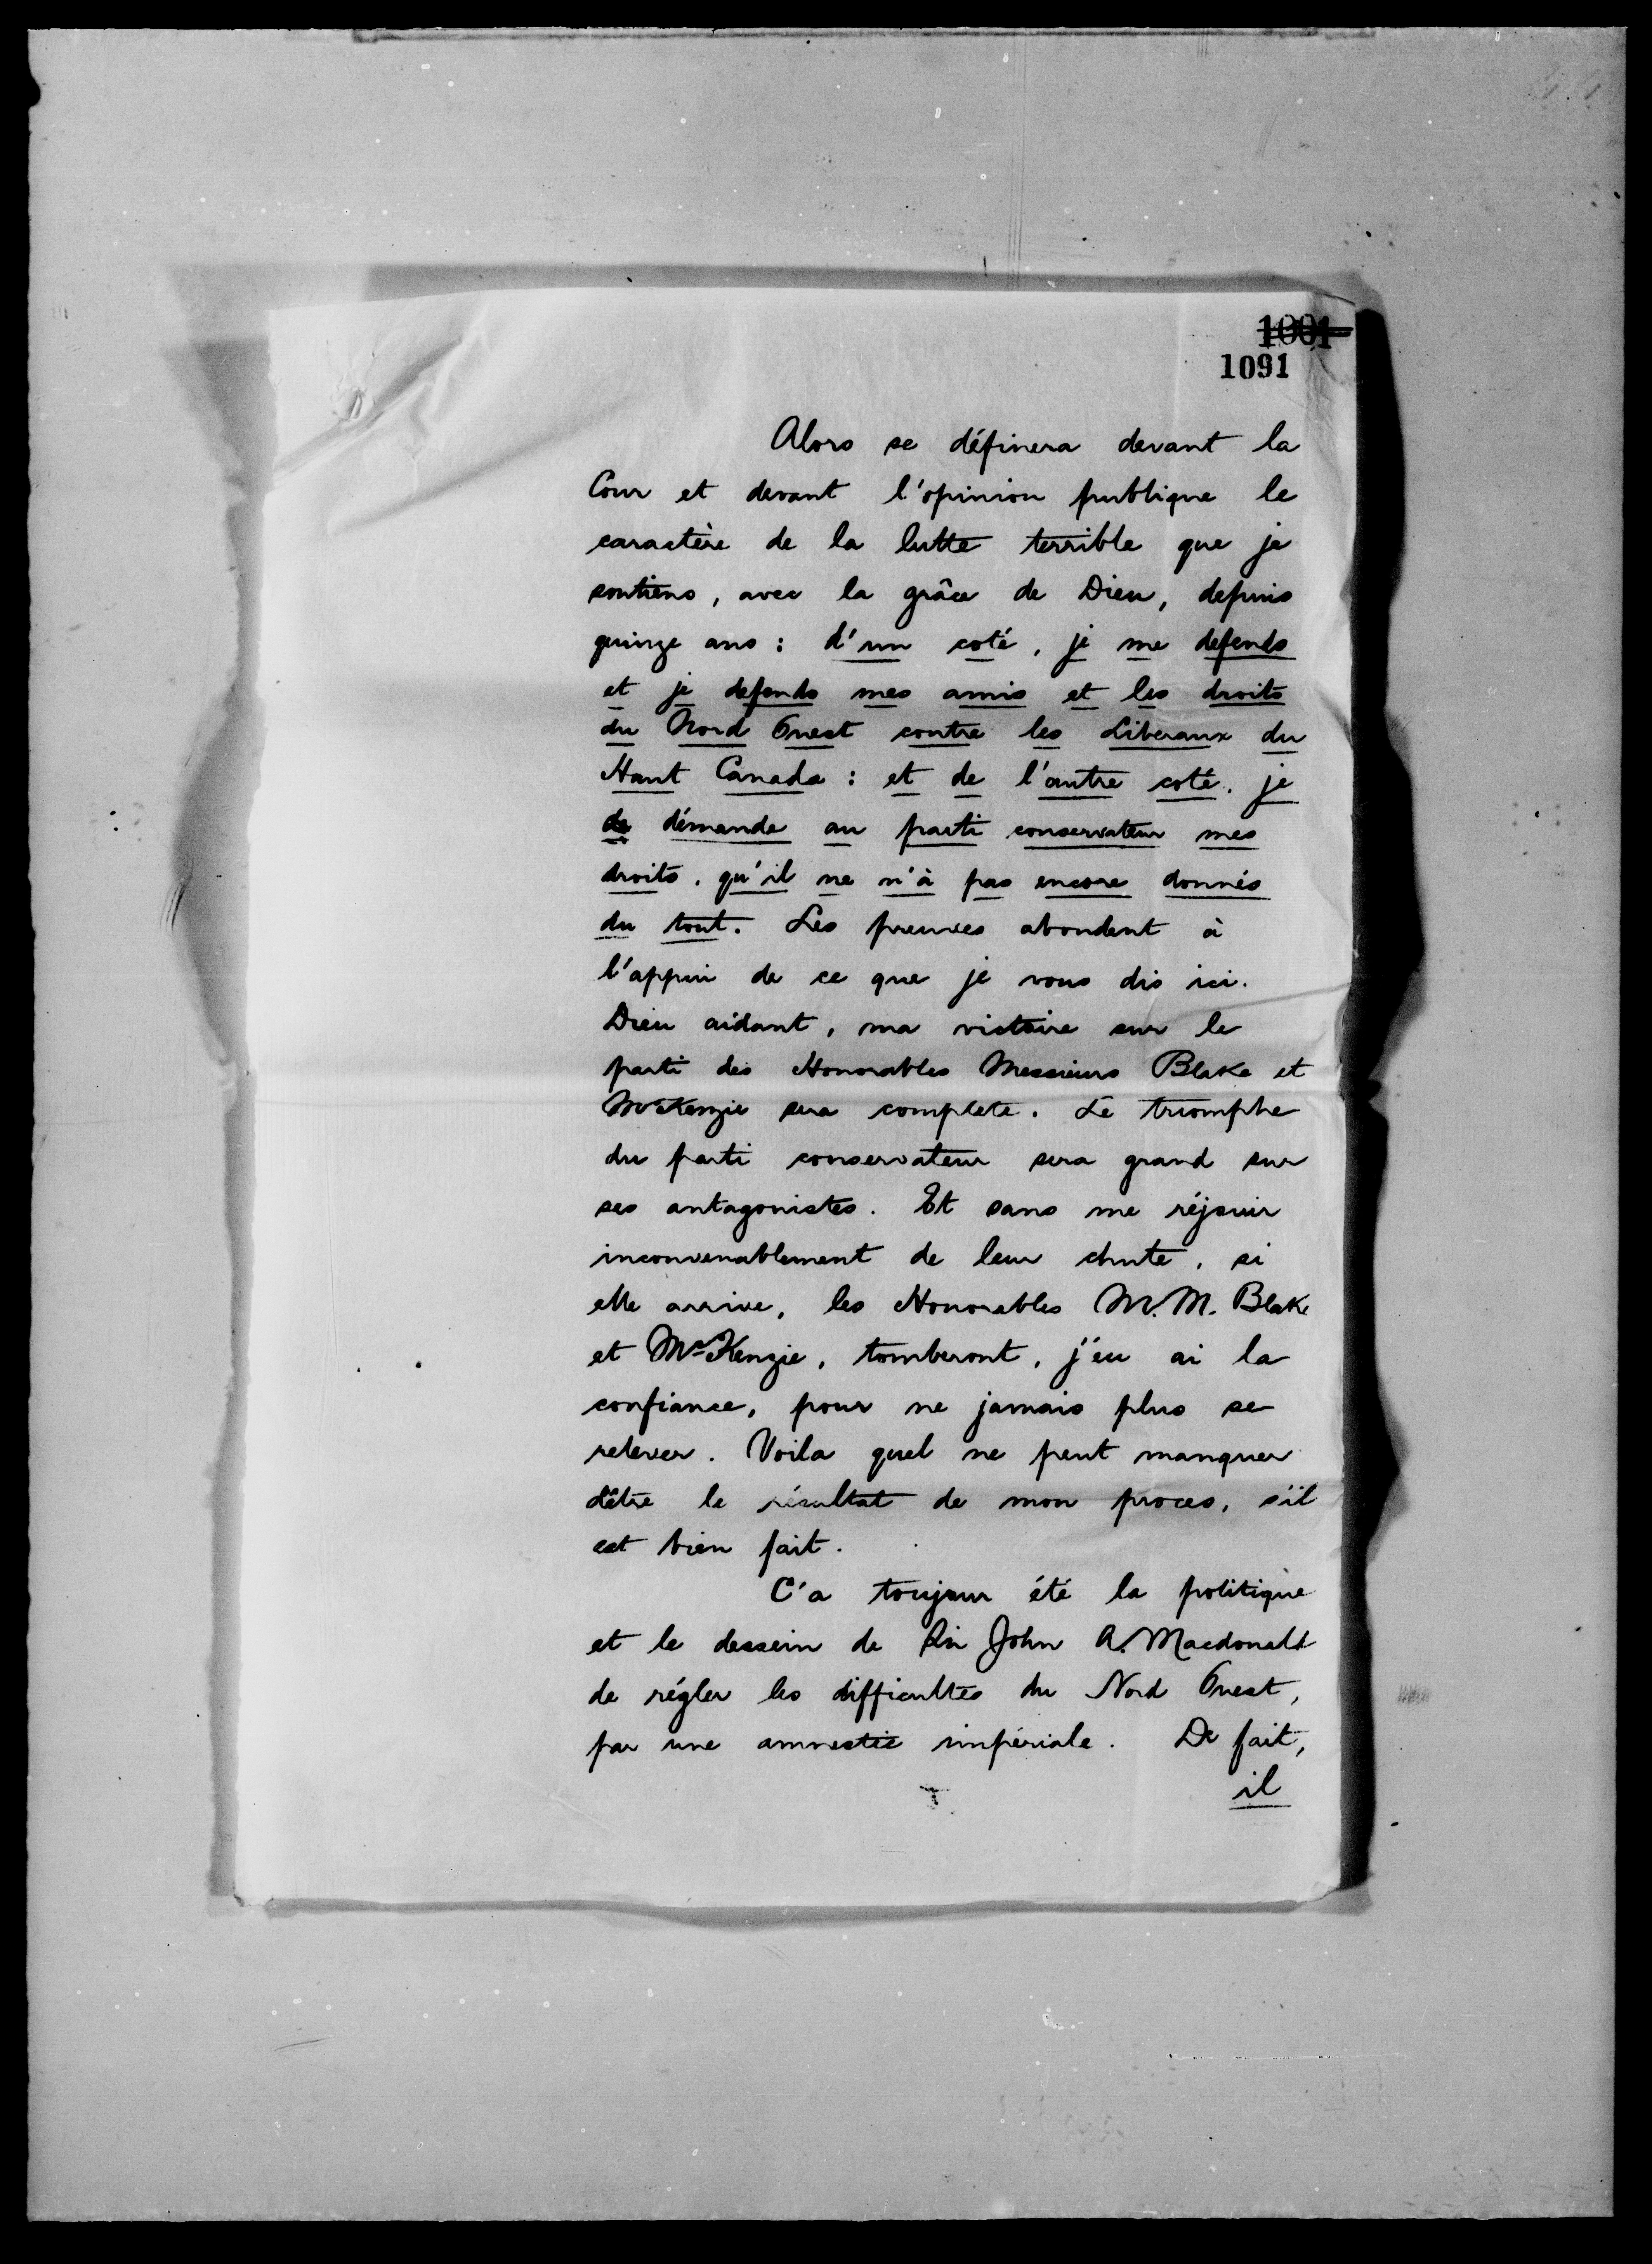 1001
1091
Alors se définera devant la
Cour et devant l'opinion publique le
caractère de la lutte terrible que je
soutiens, avec la grâce de Dieu, depuis
quinze ans : d'un coté, je me defends
et je defends mes amis et les droits
du Nord Ouest contre les Liberaux du
Haut Canada : et de l'autre coté, je
de démande au parti conservateur mes
droits, qu'il ne m'à pas encore donnés
du tout. Les preuves abondent à
l'appui de ce que je vous dis ici.
Dieu aidant, ma victoire sur le
parti des Honorables Messieurs Blake et
McKenzie sera complete. Le triomphe
du parti conservateur sera grand sur
ses antagonistes. Et sans me réjouir
inconvenablement de leur chute, si
elle arrive, les Honorables M.M. Blake
et McKenzie, tomberont, j'eu ai la
confiance, pour ne jamais plus se
relever. Voila quel ne peut manquer
d'être le résultat de mon proces, s'il
est bien fait.
C'a toujour été la politique
et le dessein de Sir John A. Macdonald
de régler les difficultés du Nord Ouest,
par une amnestie impériale. De fait,
il